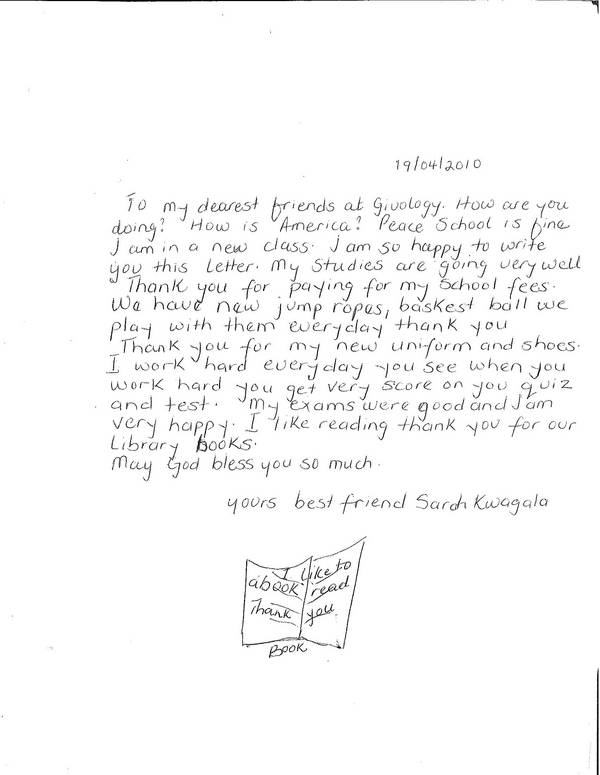 19/04/2010
To my dearest friends at Givology. How are you
doing? How is America? Peace School is fine
I am in a new class. I am so happy to write
you this Letter. My Studies are going very well
Thank you for paying for my School fees.
We have new jump ropes, baskest ball we
play with them everyday thank you
Thank you for my new uniform and shoes.
I work hard everyday you see when you
work hard you get very score on you quiz
and test. My exams were good and I am
very happy. I like reading thank you for our
Library BOOKS.
May God bless you so much.
yours best friend Sarah Kwagala
I Like to
abook read
Thank you
BOOK